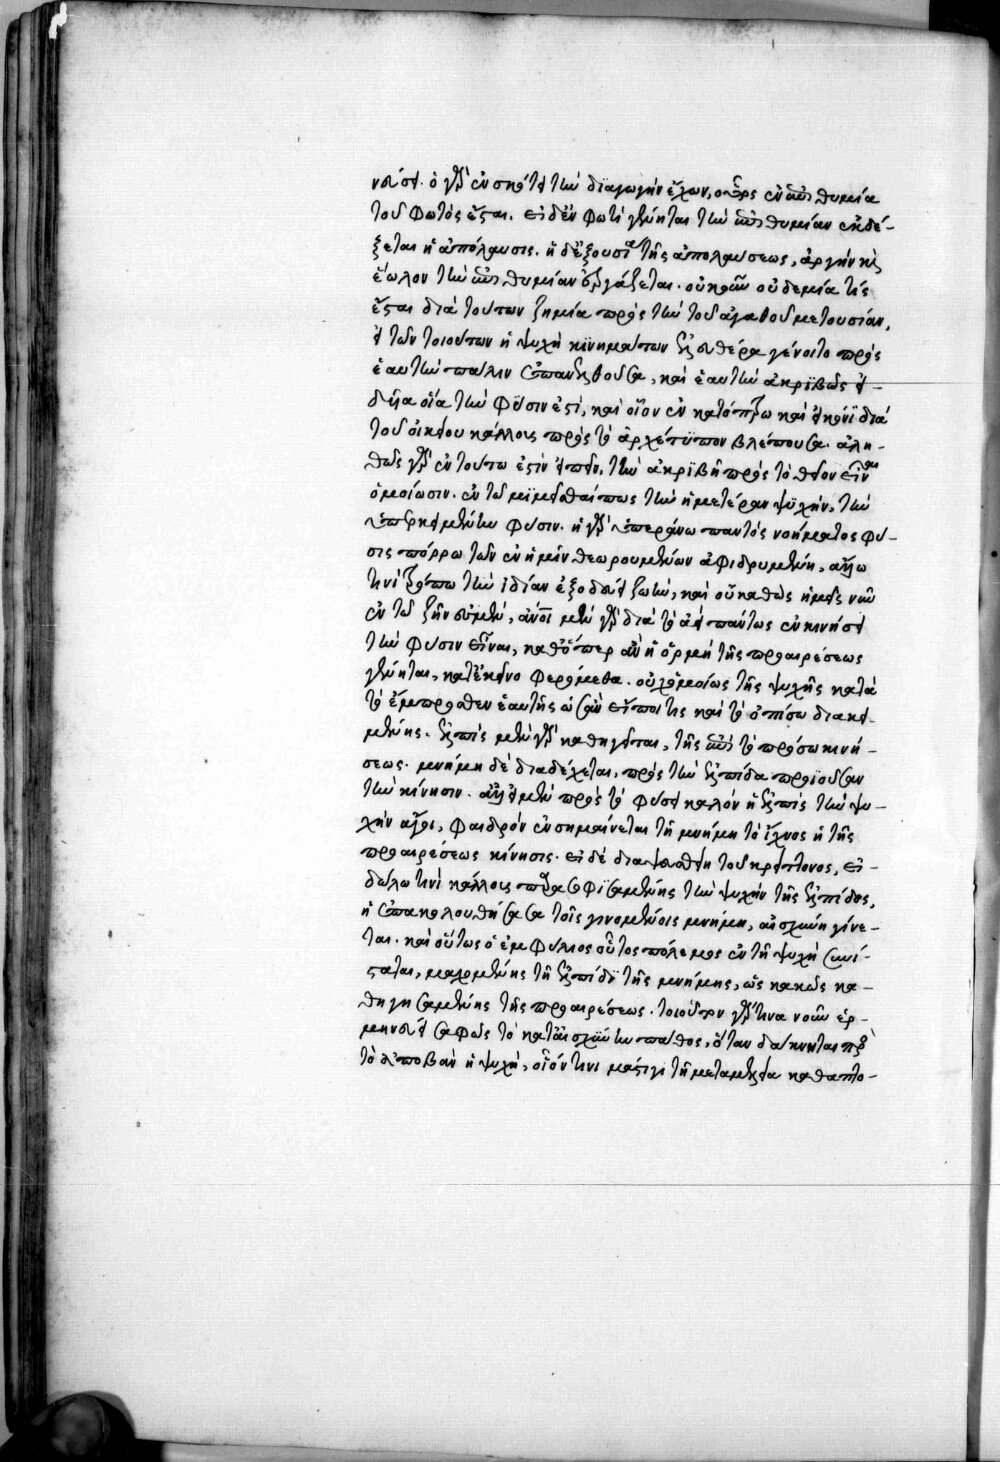 νεύσῃ. ὁ γὰρ ἐν σκότει τὴν διαγωγὴν ἔχων, οὗτος ἐν ἐπιθυμία
τοῦ φωτὸς ἔσται. εἰ δ' ἐν φωτὶ γένηται τὴν ἐπιθυμίαν ἐκδέ-
ξεται ἡ ἀπόλαυσις. ἡ δ' ἐξουσία τῆς ἀπολαύσεως, ἀργὴν καὶ
ἕωλον τὴν ἐπιθυμίαν ἐργάζεται. οὐκοῦν οὐδεμία τίς
ἔσται διὰ τούτων ζημία πρὸς τὴν τοῦ ἀγαθοῦ μετουσίαν,
εἰ τῶν τοιούτων ἡ ψυχὴ κινημάτων ἐλευθέρα γένοιτο πρὸς
ἑαυτὴν πάλιν ἐπανελθοῦσα, καὶ ἑαυτὴν ἀκριβῶς εἰ-
δυῖα οἵα τὴν φύσιν ἐστὶ, καὶ οἷον ἐν κατόπτρω καὶ εἰκόνι διὰ
τοῦ οἰκείου κάλλους πρὸς τὸ ἀρχέτυπον βλέπουσα. ἀλη-
θῶς γὰρ ἐν τούτω ἐστὶν εἰπεῖν, τὴν ἀκριβῆ πρὸς τὸ θεῖον εἶναι
ὁμοίωσιν. ἐν τῶ μιμεῖσθαί πως τὴν ἡμετέραν ψυχὴν, τὴν
ὑπερκειμένην φύσιν. ἡ γὰρ ὑπεράνω παντὸς νοήματος φύ-
σις πόρρω τῶν ἐν ἡμῖν θεωρουμένων ἀφιδρυμένη, ἄλλω
τινὶ τρόπω τὴν ἰδίαν ἐξοδεύει ζωὴν, καὶ οὐ καθὼς ἡμεῖς νῦν
ἐν τῶ ζῆν ἐσμὲν, ἄνθρωποι μὲν γὰρ διὰ τὸ ἀεὶ πάντως ἐν κινήσει
τὴν φύσιν εἶναι, καθ' ὅπερ ἂν ἡ ὁρμὴ τῆς προαιρέσεως
γένηται, κατ' ἐκεῖνο φερόμεθα. οὐχ ὁμοίως τῆς ψυχῆς κατὰ
τὸ ἔμπροσθεν ἑαυτῆς ὡσὰν εἴποι τις καὶ τὸ ὀπίσω διακει-
μένης. ἐλπὶς μὲν γὰρ καθηγεῖται, τῆς ἐπὶ τὸ πρόσω κινή-
σεως. μνήμη δὲ διαδέχεται, πρὸς τὴν ἐλπίδα προϊοῦσαν
τὴν κίνησιν. ἀλλ' εἰ μὲν πρὸς τὸ φύσει καλὸν ἡ ἐλπὶς τὴν ψυ-
χὴν ἄγοι, φαιδρὸν ἐνσημαίνεται τῆ μνήμη τὸ ἴχνος ἡ τῆς
προαιρέσεως κίνησις. εἰ δὲ διαψευσθείη τοῦ κρείττονος, εἰ-
δώλω τινὶ κάλλους παρασοφισαμένης τὴν ψυχὴν τῆς ἐλπίδος,
ἡ ἐπακολουθήσασα τοῖς γινομένοις μνήμη, αἰσχύνη γίνε-
ται. καὶ οὕτως ὁ ἐμφύλιος οὗτος πόλεμος ἐν τῆ ψυχῆ συνί-
σταται, μαχομένης τῆ ἐλπίδι τῆς μνήμης, ὡς κακῶς κα-
θηγησαμένης τῆς προαιρέσεως. τοιοῦτον γάρ τινα νοῦν ἑρ-
μηνεύει σαφῶς τὸ κατ' αἰσχύνην πάθος, ὅταν δάκνηται πρὸς
τὸ ἀποβὰν ἡ ψυχὴ, οἷόν τινι μάστιγι τῆ μεταμελεία καθαπτο-